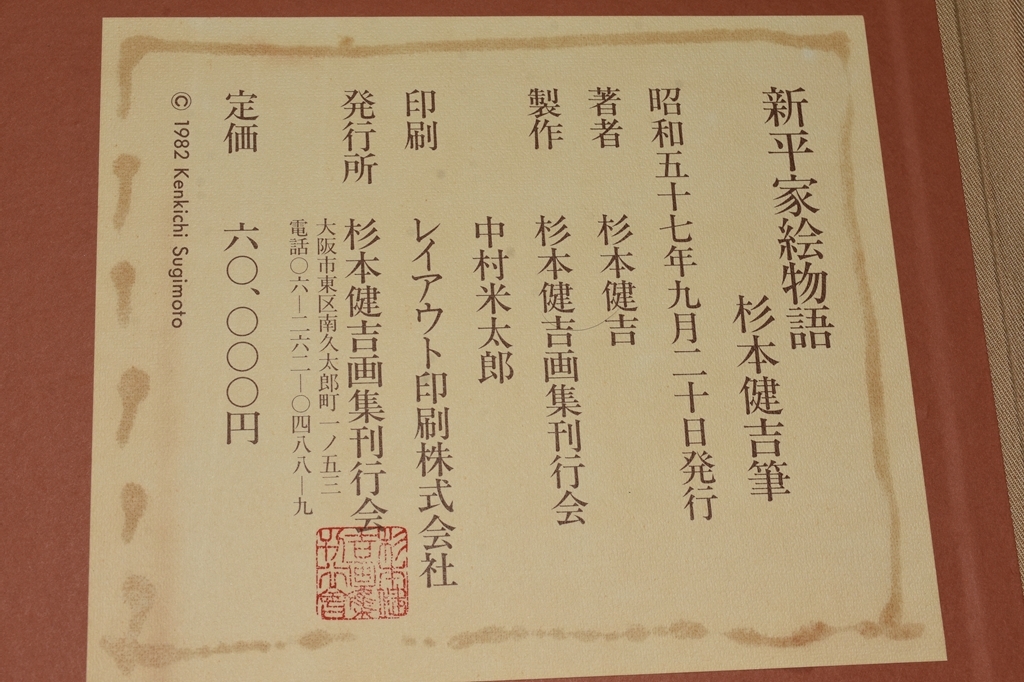 新平家絵物語
杉本健吉筆
昭和五十七年九月二十日発行
著者 杉本健吉
製作 杉本健吉画集刊行会
中村米太郎
印刷 レイアウト印刷株式会社
発行所 杉本健吉画集刊行会
大阪市東区南久太郎町一ノ五三
電話〇六―二六二―〇四八八―九
定価 六〇、〇〇〇円
© 1982 Kenkichi Sugimoto
杉本健吉画集刊行会